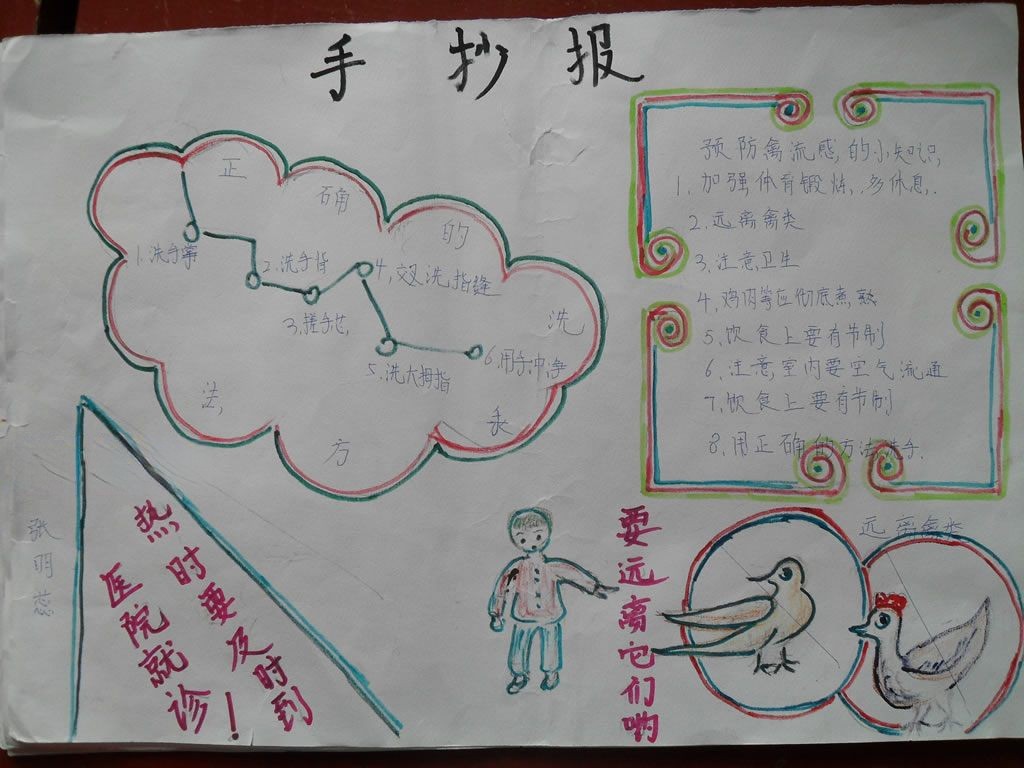 手抄报
正确的洗手方法
1.洗手掌
2.洗手指
3.搓手心
4.交叉洗指缝
5.洗大拇指
6.用手冲净
预防禽流感的小知识
1.加强体育锻炼,多休息.
2.远离禽类
3.注意卫生
4.鸡肉等应彻底煮熟
5.饮食上要有节制
6.注意室内要空气流通
7.饮食上要有节制
8.用正确的方法洗手.
张明蕊
热时要及时到
医院就诊!
要远离它们哟
远离禽类